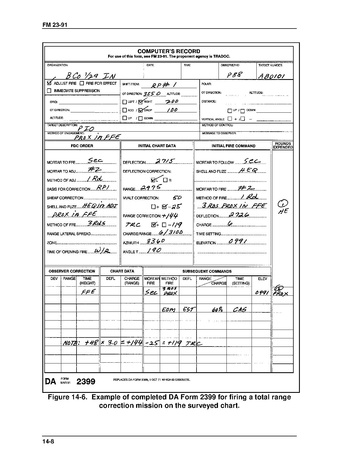 FM 23-91
COMPUTER'S RECORD
For use of this form, see FM 23-91. The proponent agency is TRADOC.
ORGANIZATION DATE TIME OBSERVER ID TARGET NUMBER
B Co 1/29 IN P88 AB0101
ADJUST FIRE FIRE FOR EFFECT
IMMEDIATE SUPPRESSION
SHIFT FROM RP#1
OT DIRECTION 3550 ALTITUDE
POLAR:
OT DIRECTION: ALTITUDE:
GRID: LEFT RIGHT 200
DISTANCE:
OT DIRECTION: ADD DROP 100
UP DOWN
ALTITUDE: UP DOWN
VERTICAL ANGLE + -
TARGET DESCRIPTION: PIO
METHOD OF CONTROL:
METHOD OF ENGAGEMENT: PROX IN FFE
MESSAGE TO OBSERVER:
FDC ORDER INITIAL CHART DATA INITIAL FIRE COMMAND ROUNDS EXPENDED
MORTAR TO FFE SEC DEFLECTION 2715 MORTAR TO FOLLOW SEC
MORTAR TO ADJ #2 DEFLECTION CORRECTION: SHELL AND FUZE HEQ
METHOD OF ADJ 1 Rd L R
BASIS FOR CORRECTION RP1 RANGE 2975 MORTAR TO FIRE #2
SHEAF CORRECTION VI/ALT CORRECTION: 50 METHOD OF FIRE 1 Rd
SHELL AND FUZE HEQ IN ADJ + - 25 3 RDS PROX IN FFE
PROX IN FFE RANGE CORRECTION +144 DEFLECTION 2726
METHOD OF FFE 3 RDS TRC + - 119 CHARGE 6
RANGE LATERAL SPREAD CHARGE/RANGE 6/3100 TIME SETTING
ZONE AZIMUTH 3360 ELEVATION 0991
TIME OF OPENING FIRE W/R ANGLE T 190
1 HE
OBSERVER CORRECTION CHART DATA SUBSEQUENT COMMANDS
DEV RANGE TIME (HEIGHT) DEFL CHARGE (RANGE) MORTAR FIRE METHOD FIRE DEFL RANGE CHARGE TIME (SETTING) ELEV
FFE SEC PROX 0991 PROX
EOM EST CAS
NOTE: +48 x 3.0 = +144 -25 = +119 TRC
DA FORM 2399
Figure 14-6. Example of completed DA Form 2399 for firing a total range
correction mission on the surveyed chart.
14-8